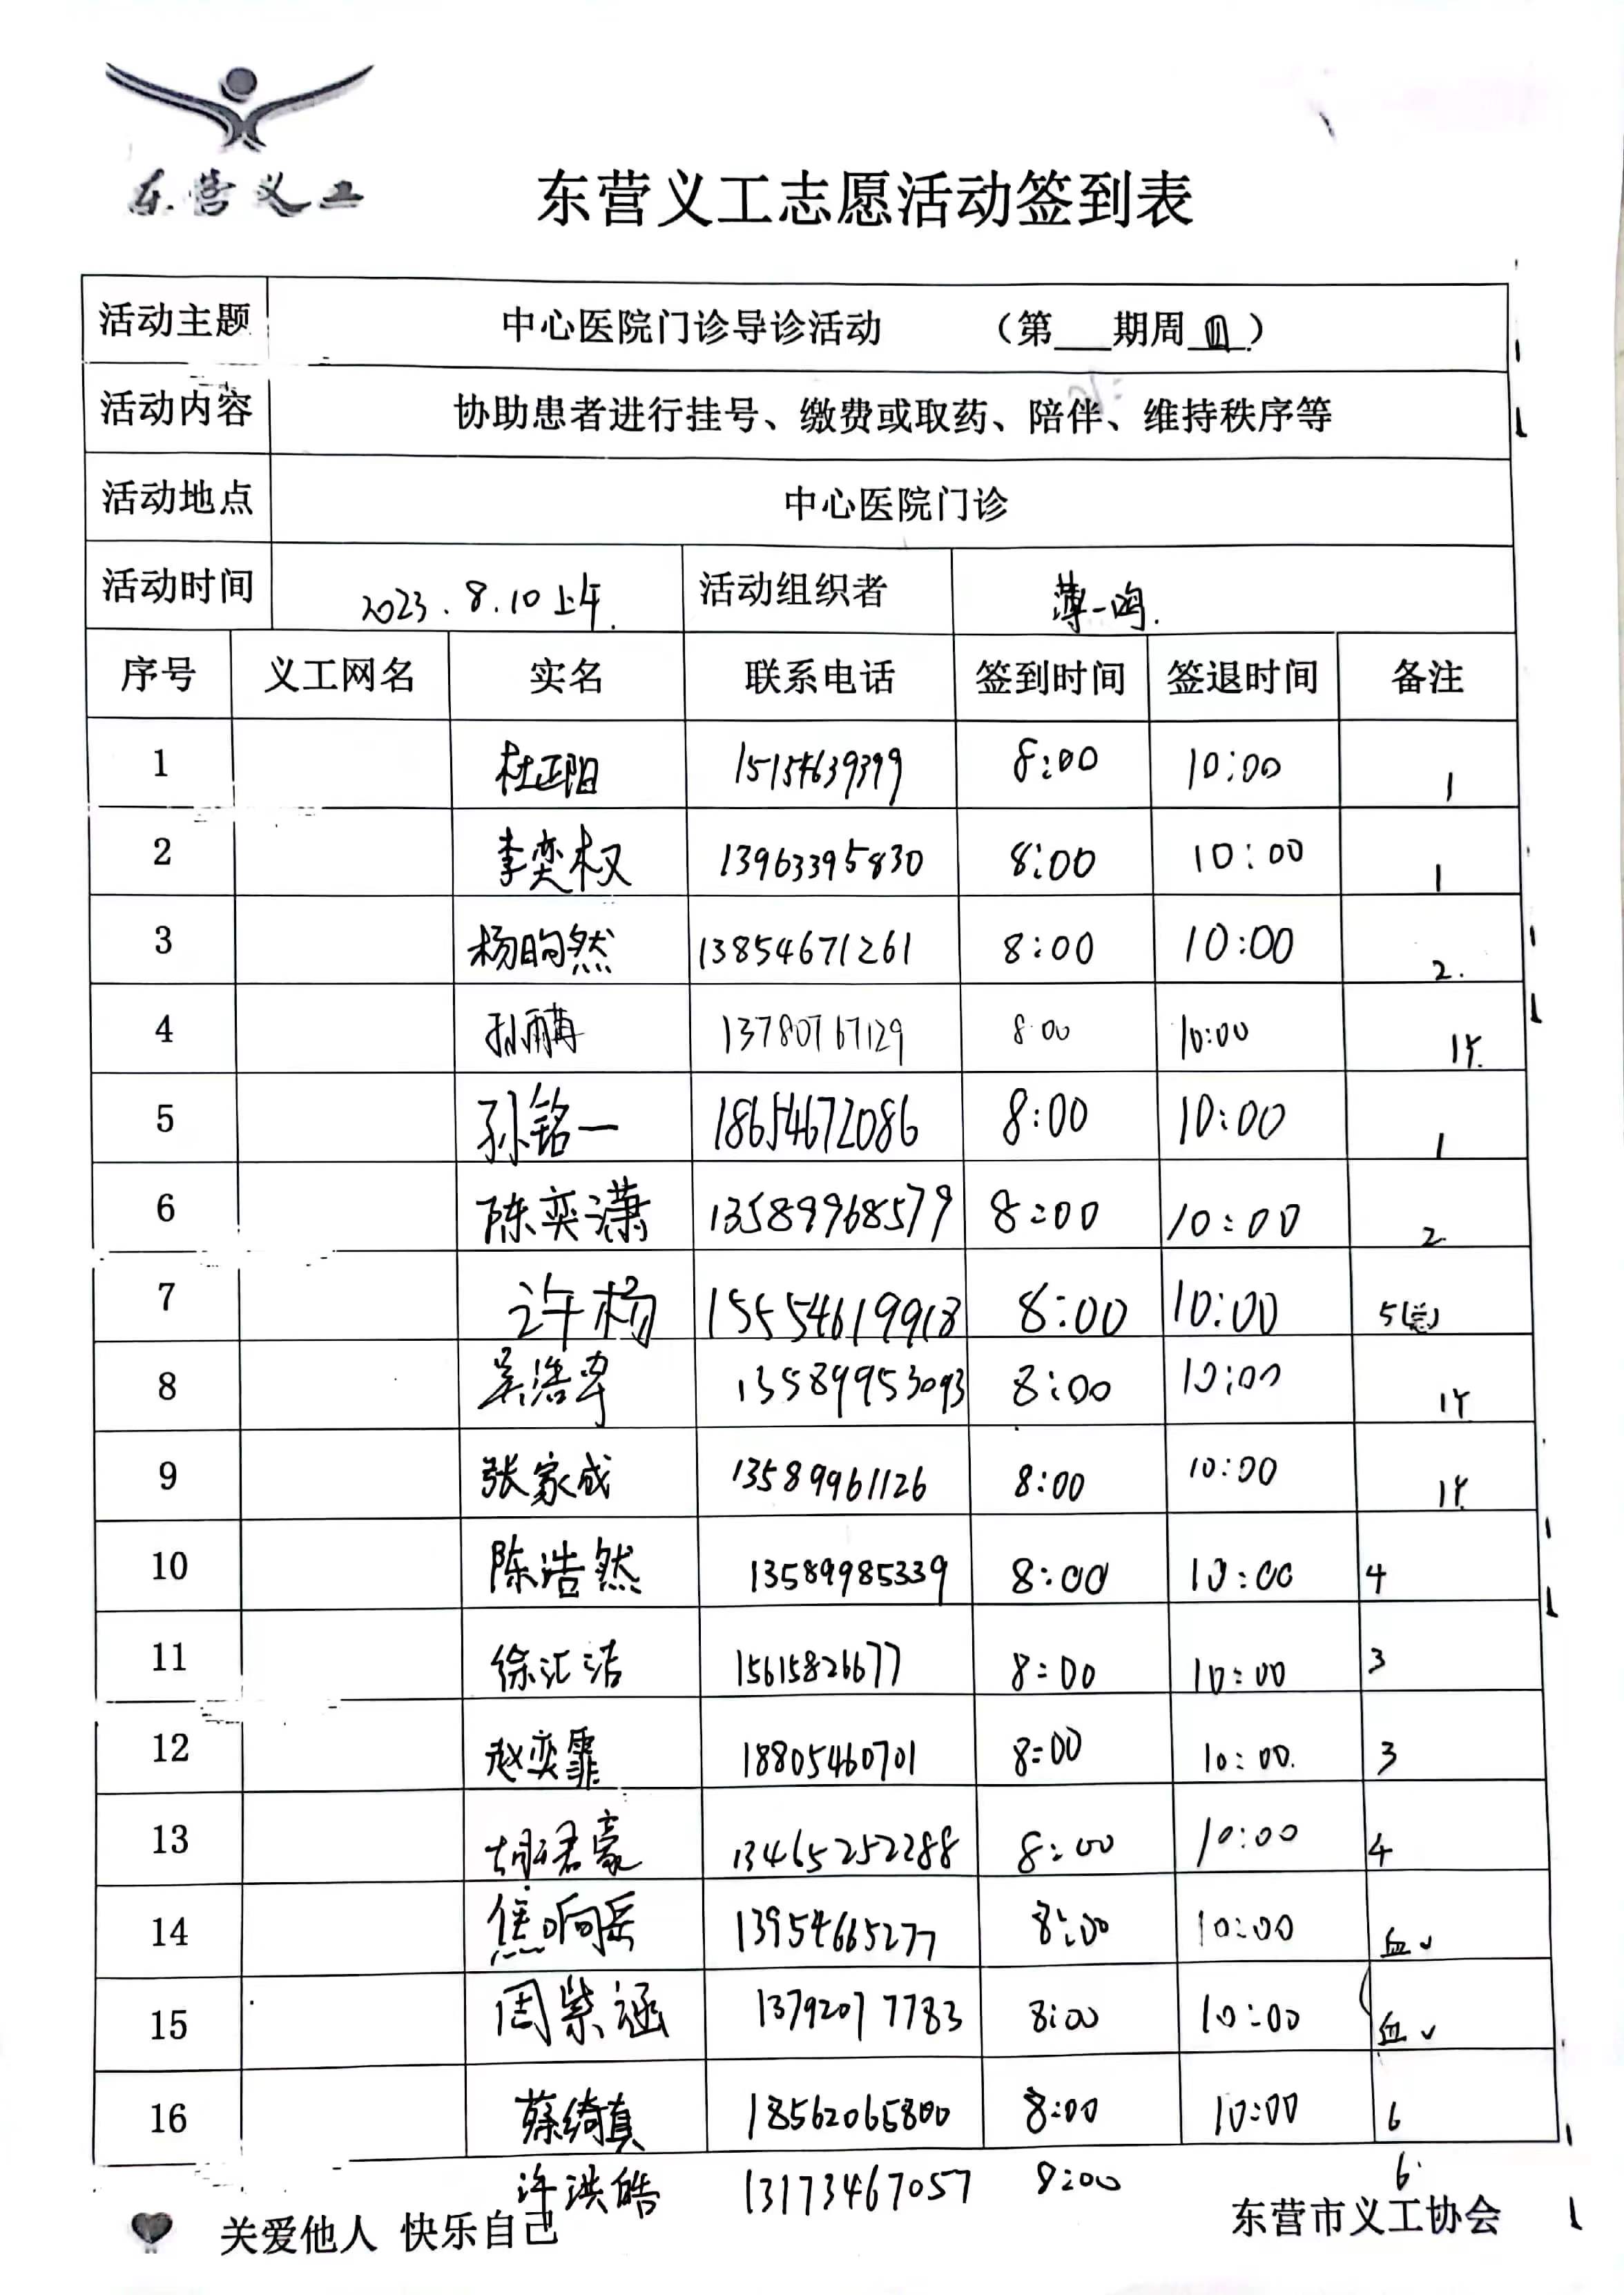 东营义工
东营义工志愿活动签到表
活动主题 中心医院门诊导诊活动 （第___期周四）
活动内容 协助患者进行挂号、缴费或取药、陪伴、维持秩序等
活动地点 中心医院门诊
活动时间 2023.8.10上午. 活动组织者 薄一鸣.
序号 义工网名 实名 联系电话 签到时间 签退时间 备注
1 杜正阳 8:00 10:00 1
2 李奕权 13963395830 8:00 10:00 1
3 杨昀然 13854671261 8:00 10:00 2.
4 13780767129 8:00 10:00
5 孙铭一 18654672086 8:00 10:00 1
6 陈奕潇 13589968579 8:00 10:00 2
7 许杨 15554619918 8:00 10:00 5(总)
8 13589953093 8:00 10:00
9 张家成 13589961126 8:00 10:00
10 陈浩然 13589985339 8:00 10:00 4
11 徐汇洁 15615826677 8:00 10:00 3
12 赵奕霏 18805460701 8:00 10:00. 3
13 胡君豪 13465252288 8:00 10:00 4
14 焦响岳 13954665277 8:00 10:00 血
15 周紫涵 13792077783 8:00 10:00 血
16 蔡绮真 18562065800 8:00 10:00 6
许洪皓 13173467057 8:00 6
关爱他人 快乐自己 东营市义工协会